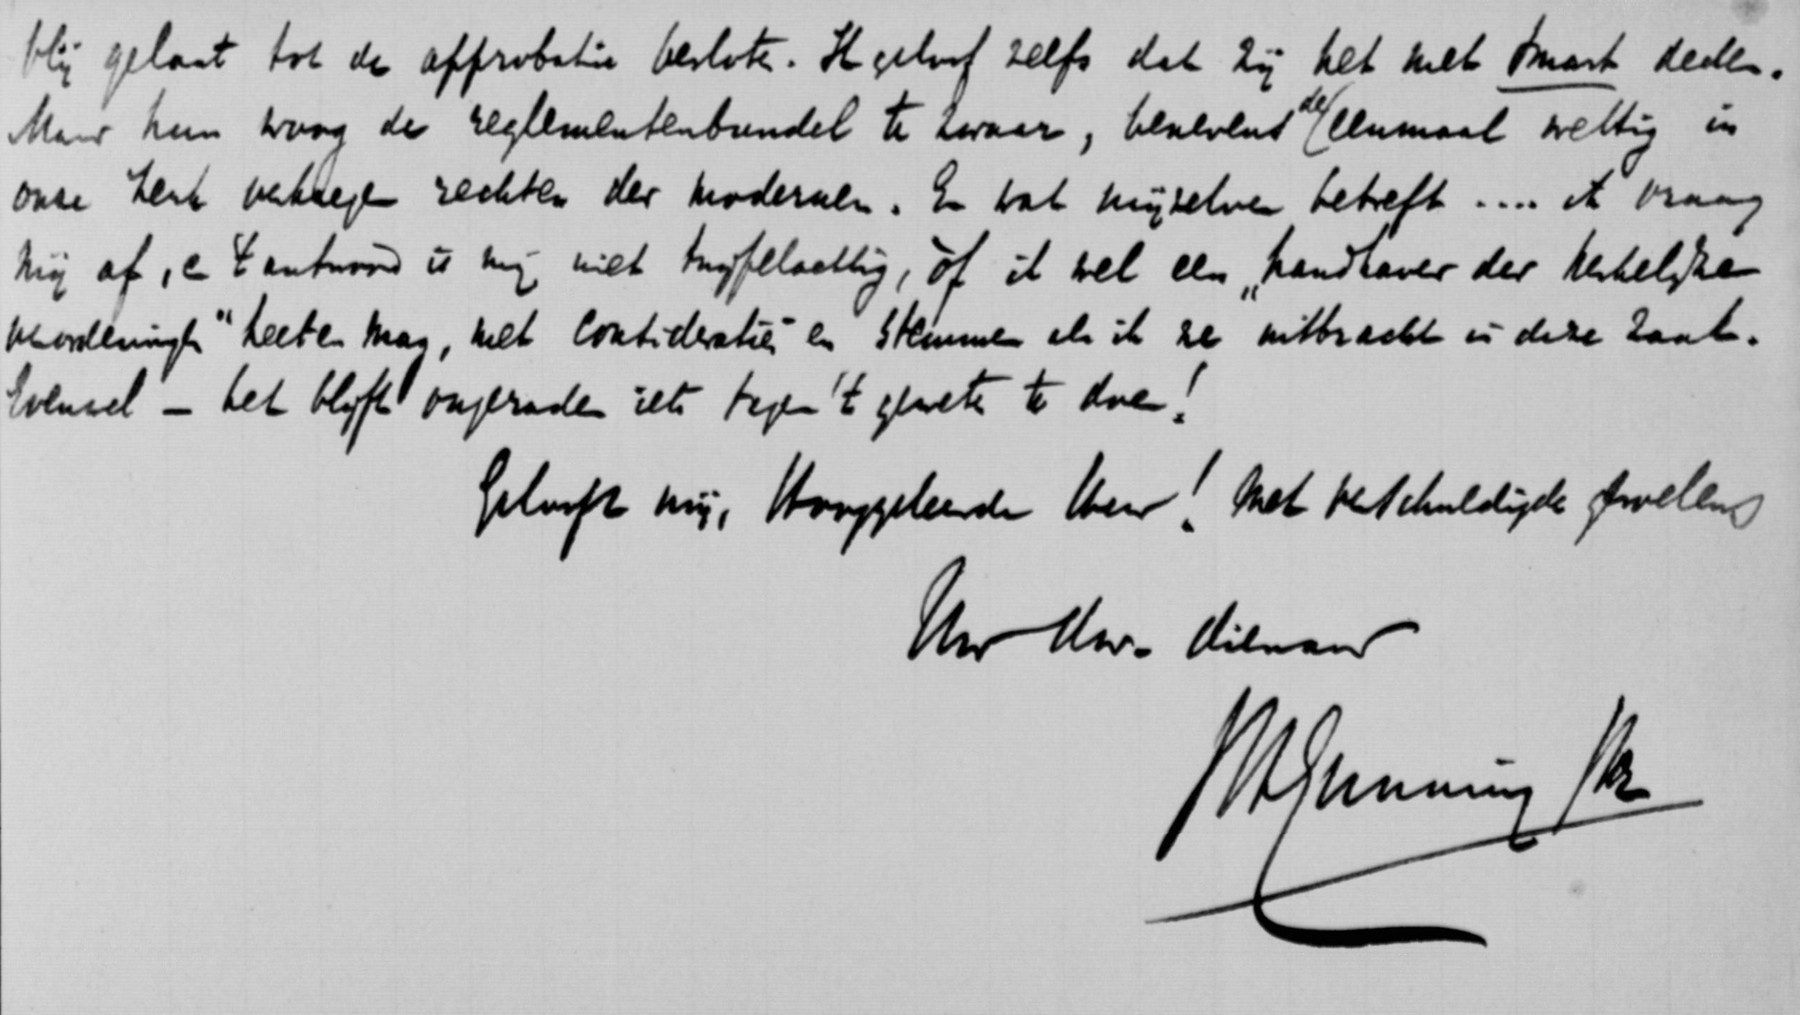 blij gelaat tot de approbatie besloten. Ik geloof zelfs dat zij het met smart deden.
Maar hun woog de reglementenbundel te zwaar, benevens de eenmaal wettig in
onze kerk verkregen rechten der modernen. En wat mijzelven betreft .... ik vraag
mij af, en 't antwoord is mij niet twijfelachtig, òf ik wel een „handhaver der kerkelijke
verordeningen" heeten mag, met consideratiën en stemmen als ik ze uitbracht in deze zaak.
Evenwel — het blijft ongeraden iets tegen 't geweten te doen!
Gelooft mij, Hooggeleerde Heer! met verschuldigde gevoelens
Uw dw. dienaar
JH Gunning JHz